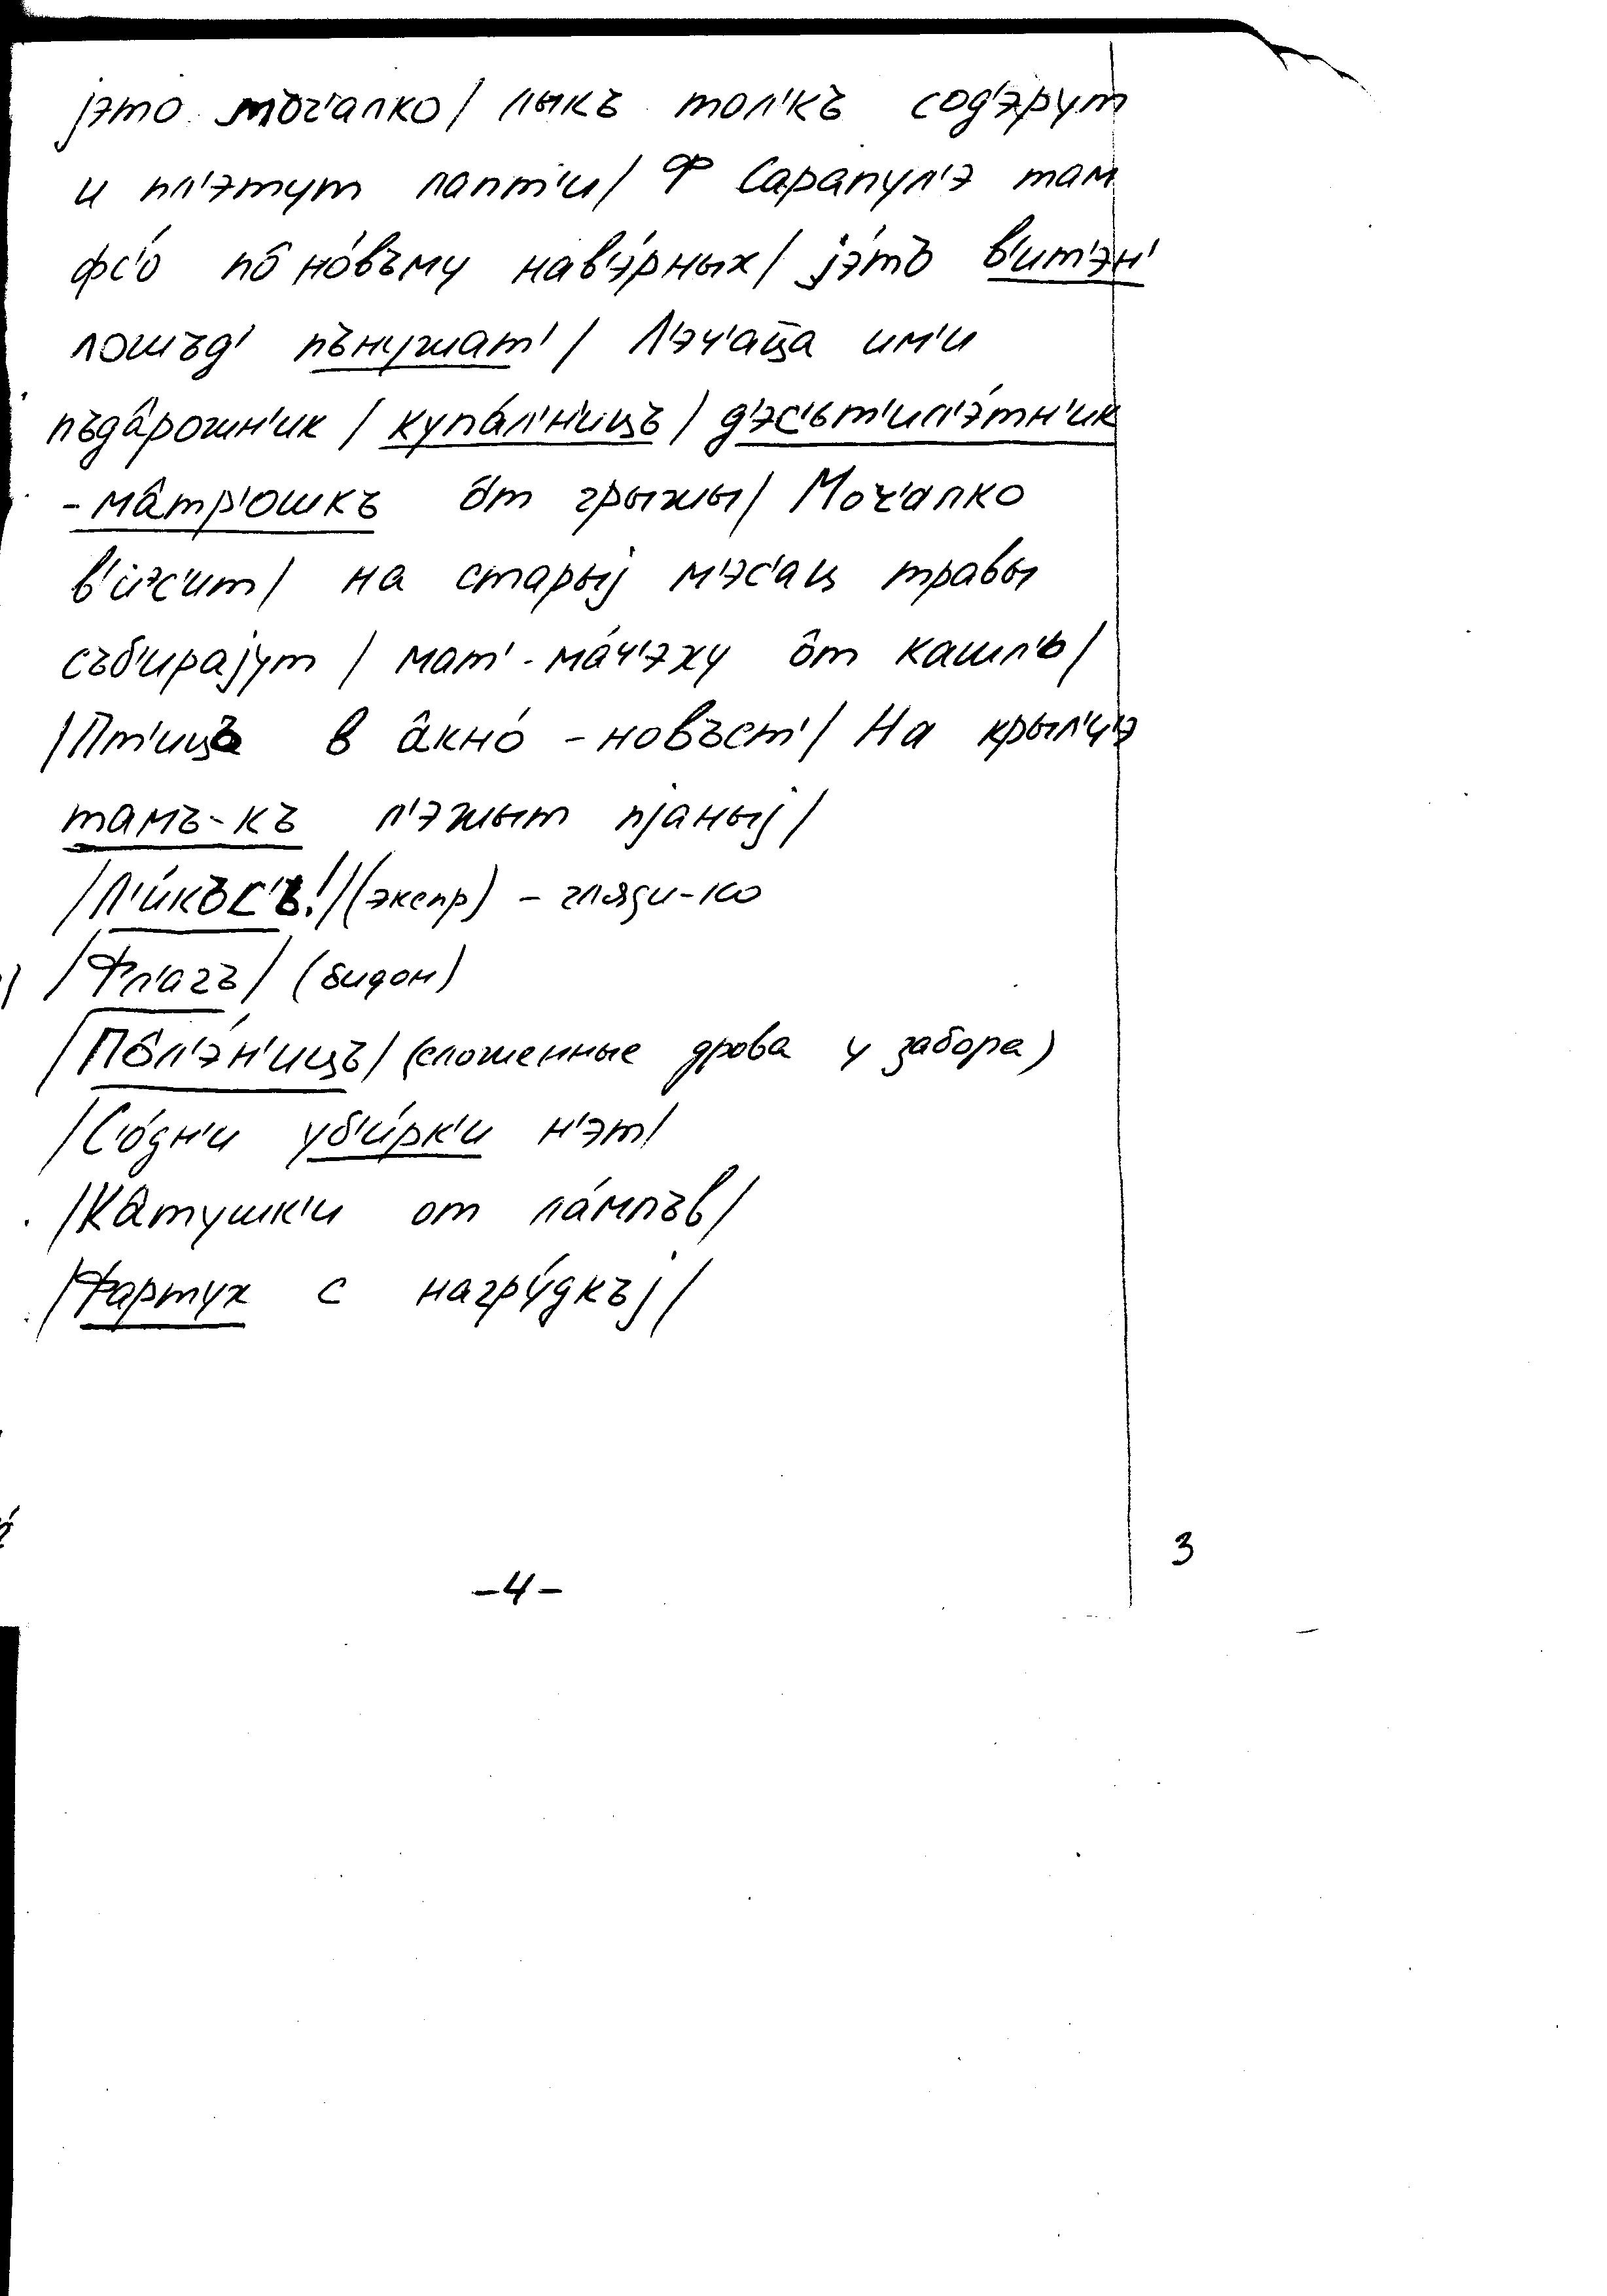 јэто моч'алко / лыкъ тол'къ сод'эрут
и пл'этут лапт'и / Ф Сарапул'э там
фс'о́ по̂ но́въму нав'э́рных / јэ́тъ в'ит'эн'
лошъд' пънужат' / Л'эч'ац̅а им'и
пъда̂рожн'ик / купа́л'н'ицъ / д'эс'ьт'ил'э́тн'ик
-ма̂тр'ошкъ о̂т грыжы / Моч'алко
на старыј м'эс'ац травы
съб'ирајут / мат'-ма́ч'эху о̂т кашл'ь /
/ Пт'ицъ в а̂кно́ - новъст' / На крыл'ц'э
тамъ-къ л'эжыт пјаныј /
/ Л'и́къс'ъ! / (экспр) - гляди-ко
/ Фл'агъ / (бидон)
/ По̂л'э́н'ицъ / (сложенные дрова у забора)
/ С'о́дн'и уб'и́рк'и н'эт /
/ Ка̂тушк'и от ла́мпъв /
/ Фартух с нагру́дкъј /
3
-4-